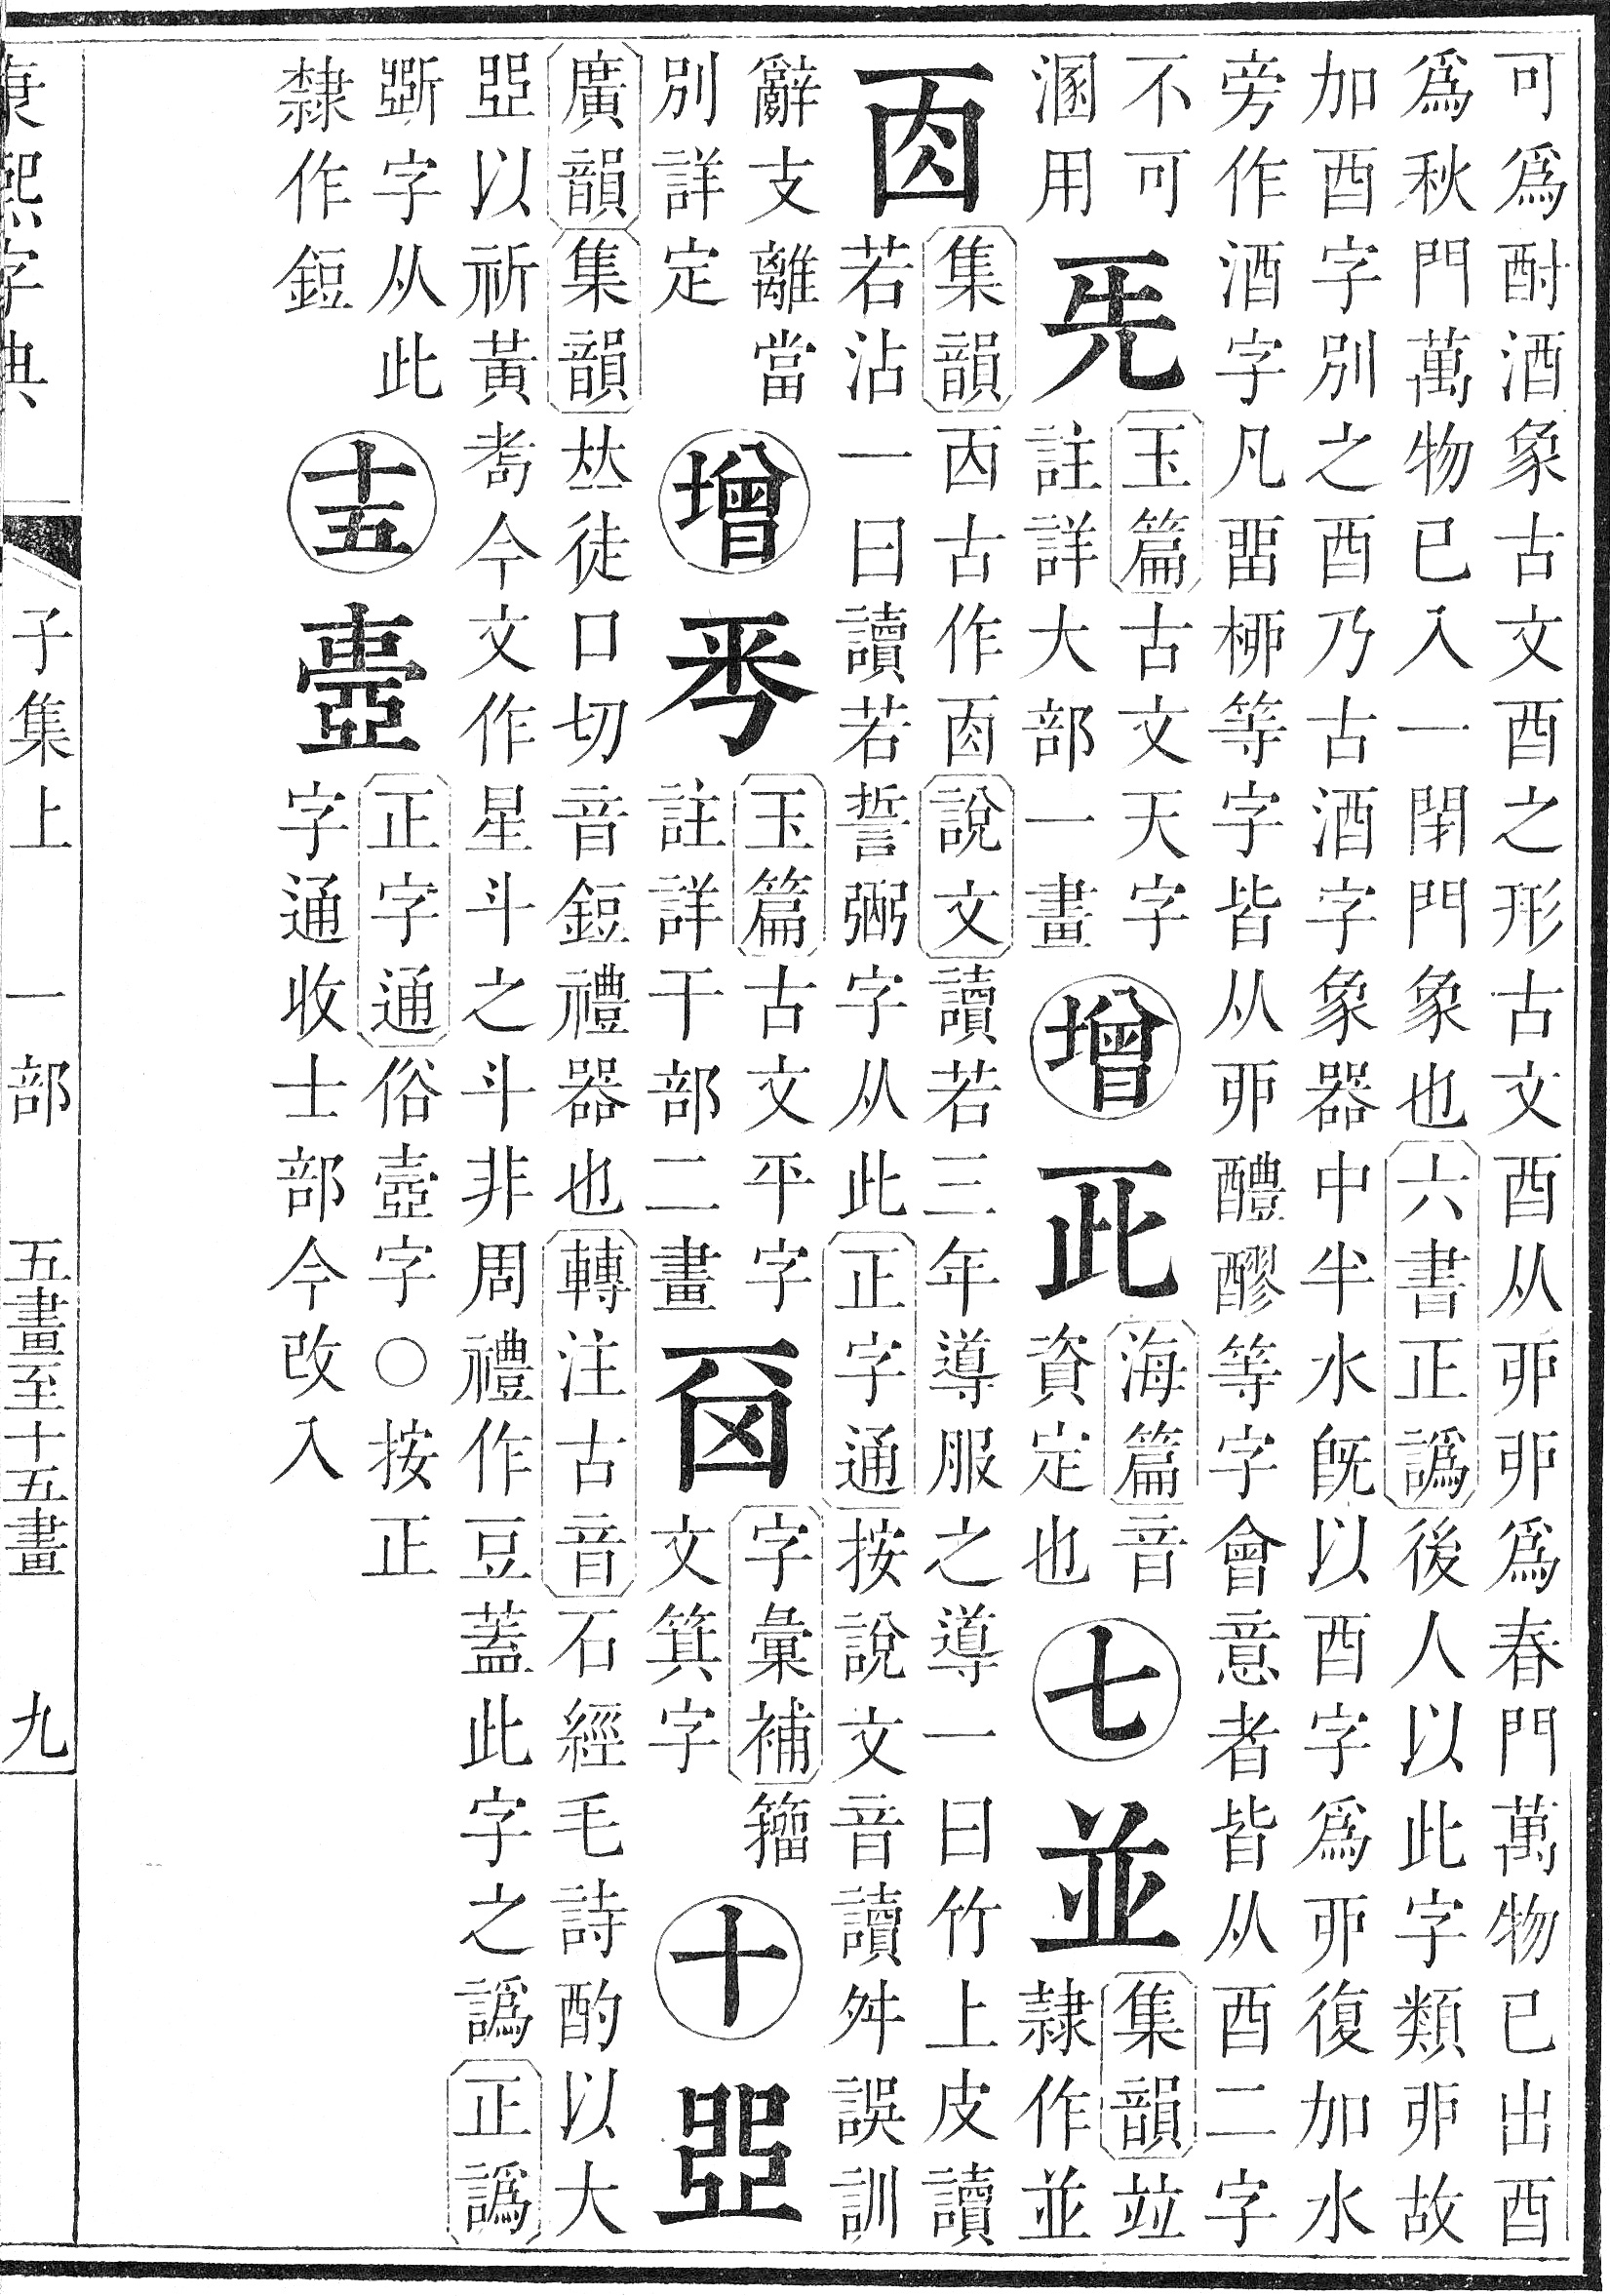 可爲酎酒象古文酉之形古文酉从丣戼爲春門萬物已出酉
爲秋門萬物已入一閉門象也六書正譌後人以此字類戼故
加酉字別之酉乃古酒字象器中半水旣以酉字爲丣復加水
旁作酒字凡畱桺等字皆从丣醴醪等字會意者皆从酉二字
不可
溷用
𠀡
玉篇古文天字
註詳大部一畫
增
海篇音
資定也
七
並
集韻竝
隸作並
㐁
集韻㐁古作㐁說文讀若三年導服之導一曰竹上皮讀
若沾一曰讀若誓弻字从此正字通按說文音讀舛誤訓
辭支離當
別詳定
增
玉篇古文平字
註詳干部二畫
字彙補籀
文箕字
十
𠁁
廣韻集韻𠀤徒口切音鋀禮器也轉注古音石經毛詩酌以大
𠁁以祈黃耇今文作星斗之斗非周禮作豆蓋此字之譌正譌
斵字从此
隸作鋀
十五
正字通俗壺字○按正
字通收士部今改入
康熙字典 子集上 一部 五畫至十五畫 九